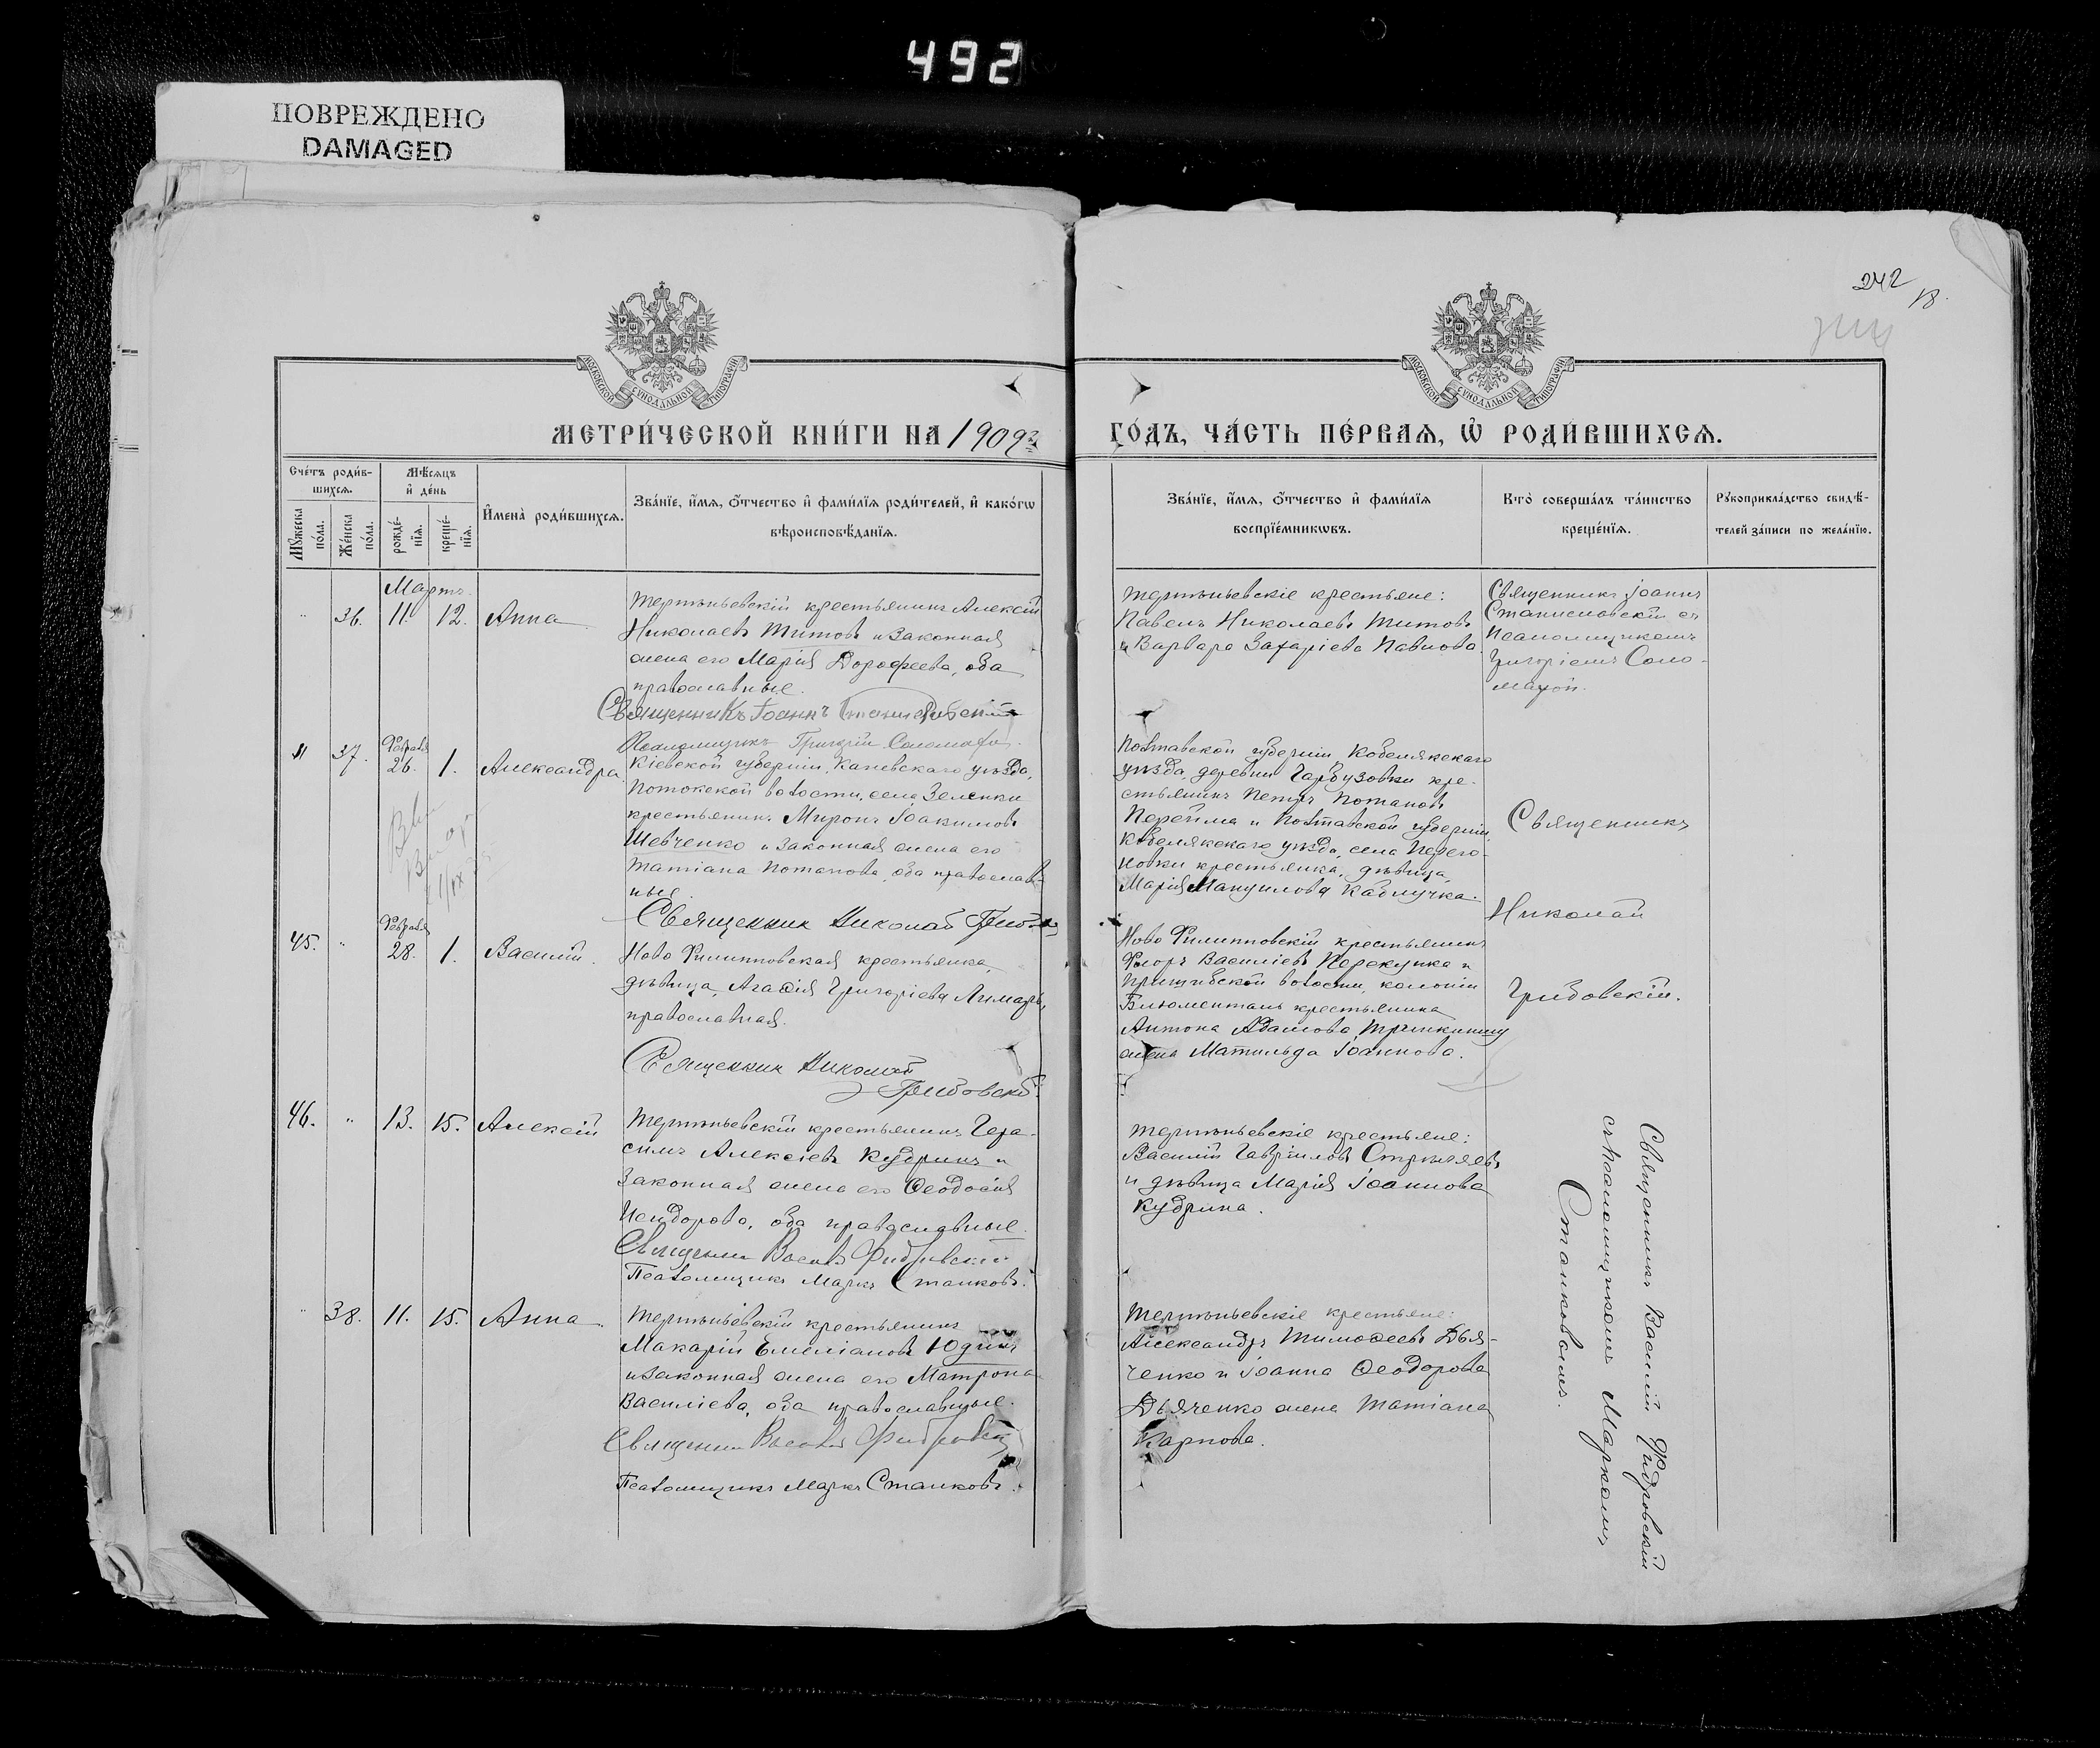 492
ПОВРЕЖДЕНО
DAMAGED
242
18.
МОСКОВСКОЙ СѴНОДАЛЬНОЙ ТИПОГРАФІИ
МОСКОВСКОЙ СѴНОДАЛЬНОЙ ТИПОГРАФІИ
МЕТРИ́ЧЕСКОЙ КНИ́ГИ НА 1909
ГО́ДЪ, ЧА́СТЬ ПЕ́РВАѦ, Ѡ҆ РОДИ́ВШИХСѦ.
Сче́тъ роди́в-
шихсѧ.
Мѣ́сѧцъ
и҆ де́нь
Мꙋ́жеска
по́ла.
Же́нска
по́ла.
рожде́-
нїѧ.
креще́-
нїѧ.
И҆мена̀ роди́вшихсѧ.
Зва́нїе, и҆́мѧ, ѻ҆́тчество и҆ фами́лїѧ роди́телей, и҆ како́гѡ
вѣроисповѣ́данїѧ.
Зва́нїе, и҆́мѧ, ѻ҆́тчество и҆ фами́лїѧ
воспрїе́мникѡвъ.
Кто̀ соверша́лъ та́инство
креще́нїѧ.
Рꙋкоприкла́дство свидѣ́-
телей за́писи по жела́нїю.
Мартъ
" 36. 11. 12. Анна
Терпѣньевскій крестьянинъ Алексій
Николаевъ Титовъ и законная
жена его Марія Дорофеева, оба
православные.
Священникъ Іоаннъ Станиславскій
Псаломщикъ Григорій Соломаха.
Терпѣньевскіе крестьяне:
Павелъ Николаевъ Титовъ
и Варвара Захаріева Павлова.
Священникъ Іоаннъ
Станиславскій съ
псаломщикомъ
Григоріемъ Соло-
махой.
" 37. Февраля 26. 1. Александра
Кіевской губерніи, Каневскаго уѣзда,
Потокской волости, села Зеленки
крестьянинъ Миронъ Іоакимовъ
Шевченко и законная жена его
Татіана Потапова, оба православ-
ные.
Священник Николай
Полтавской губерніи Кобелякскаго
уѣзда, деревни Гарбузовки кре-
стьянинъ Петръ Потаповъ
Перейма и Полтавской губерніи,
Кобелякскаго уѣзда, села Перего-
новки крестьянка, дѣвица,
Марія Мануилова Каблучка.
Священникъ
Николай
Грибовскій.
45. " Февраля 28. 1. Василій.
Ново Филипповская крестьянка,
дѣвица, Агафія Григоріева Лимарь,
православная.
Священник Николай
Грибовскій
Ново Филипповскій крестьянинъ
Флоръ Василіевъ Перекупка и
Пришибской волости, колоніи
Блюменталь крестьянина
Антона Адамова
жена Матильда Іоаннова.
46. " 13. 15. Алексій
Терпѣньевскій крестьянинъ Гера-
симъ Алексіевъ Кудринъ и
законная жена его Ѳеодосія
Исидорова, оба православные.
Псаломщикъ Маркъ Станковъ.
Терпѣньевскіе крестьяне:
Василій Гавріиловъ Стрыжаевъ
и дѣвица Марія Іоаннова
Кудрина.
Священникъ Василій Фидровскій
съ псаломщикомъ Маркомъ
Станковымъ.
" 38. 11. 15. Анна.
Терпѣньевскій крестьянинъ
Макарій Емеліановъ Юдинъ
и законная жена его Матрона
Василіева, оба православные.
Псаломщикъ Маркъ Станковъ.
Терпѣньевскіе крестьяне:
Александръ Тимоѳеевъ Дья-
ченко и Іоанна Ѳеодорова
Дьяченко жена Татіана
Карпова.